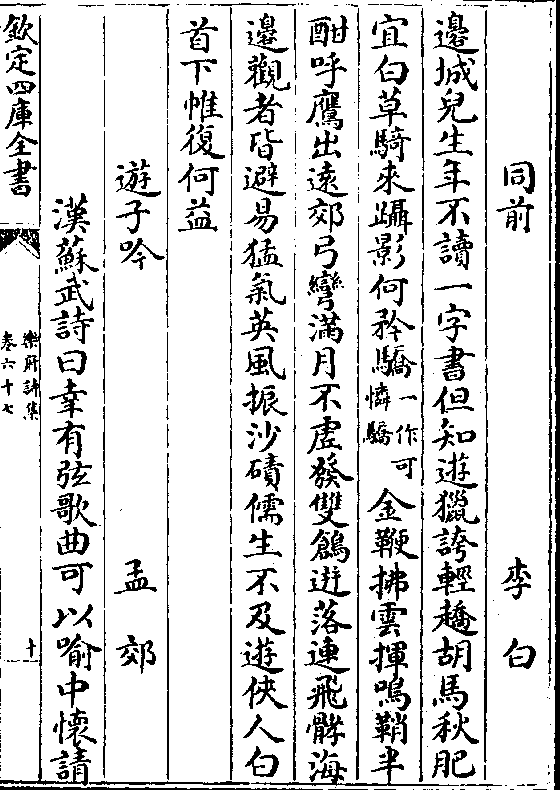 同前 李白
邊城兒生年不讀一字書但知遊獵誇輕趫胡馬秋肥
宜白草騎來躡影何矜驕一作可憐驕金鞭拂雲揮鳴鞘半
酣呼鷹出遠郊弓彎滿月不虛發雙鶬迸落連飛髇海
邊觀者皆避易猛氣英風振沙磧儒生不及遊俠人白
首下帷復何益
遊子吟 孟郊
漢蘇武詩曰幸有弦歌曲可以喻中懷請
欽定四庫全書
樂府詩集
卷六十七
十